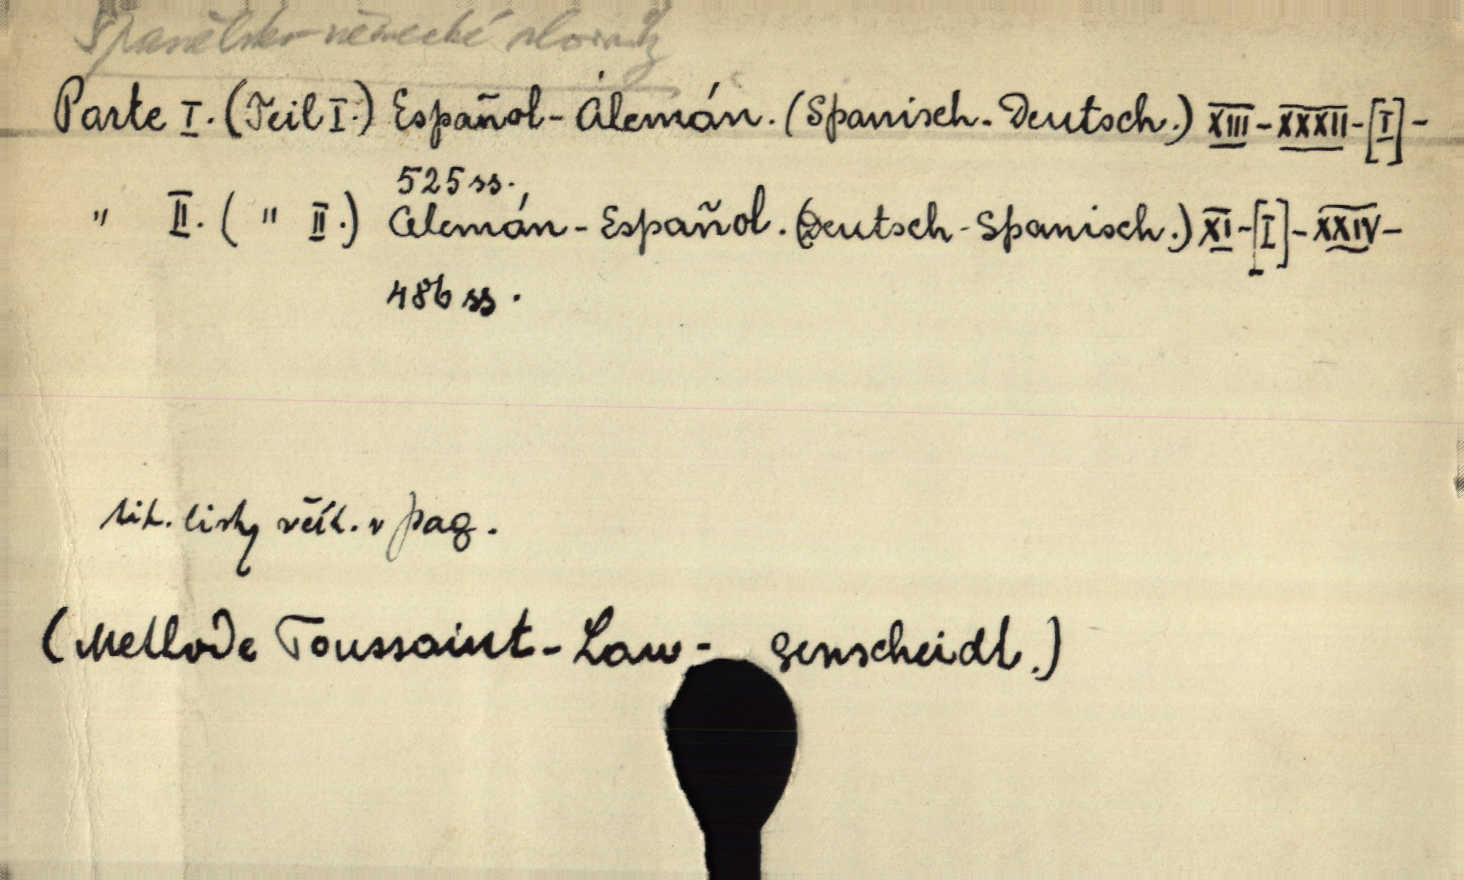 Španělsko-německé slovníky
Parte I. (Teil I.) Español-Alemán. (Spanisch-Deutsch.) XIII-XXXII-[I]-
525 ss.
" II. ( " II.) Alemán-Español. (Deutsch-Spanisch.) XI-[I]-XXIV-
486 ss.
tit. listy včít. v pag.
(Methode Toussaint-Lan- genscheidt.)